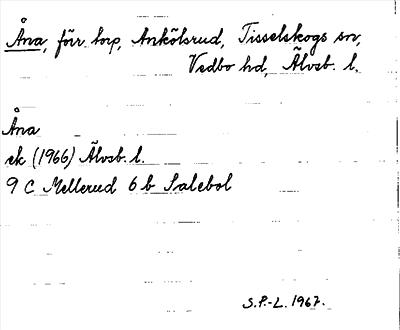 Åna, förr torp, Ankölsrud, Tisselskogs sn,
Vedbo hd, Älvsb. l.
Åna
ek (1966) Älvsb. l.
9 C Mellerud 6 b Salebol
S.P.-L. 1967.